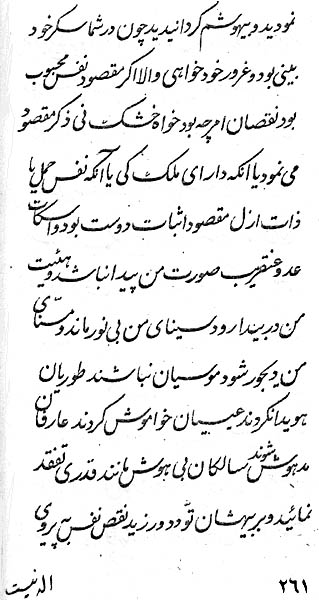 نمودید و بیهوشم گردانیدید چون در شما سکر خود
بینی بود و غرور خود خواهی والا اگر مقصود نفس محبوب
بود نقصان امر چه بود خواه خشک نی ذکر مقصود
می نمود یا آنکه دارای ملک کی یا آنکه نفس حمل یا
ذات ازل مقصود اثبات دوست بود و اسکات
عدو عنقریب صورت من پیدا نباشد و هیئت
من در بیدا رود سینای من بی نور ماند و مسنای
من دیجور شود موسیان نباشند طوریان
هویدا نکردند عیسیان خواموش کردند عارفان
مدهوش شوند سالکان بی هوش مانند قدری تفقد
نمائید و بر بیهشان تودد ورزید نقص نفس به پیروی
۲۶۱
اله نیست